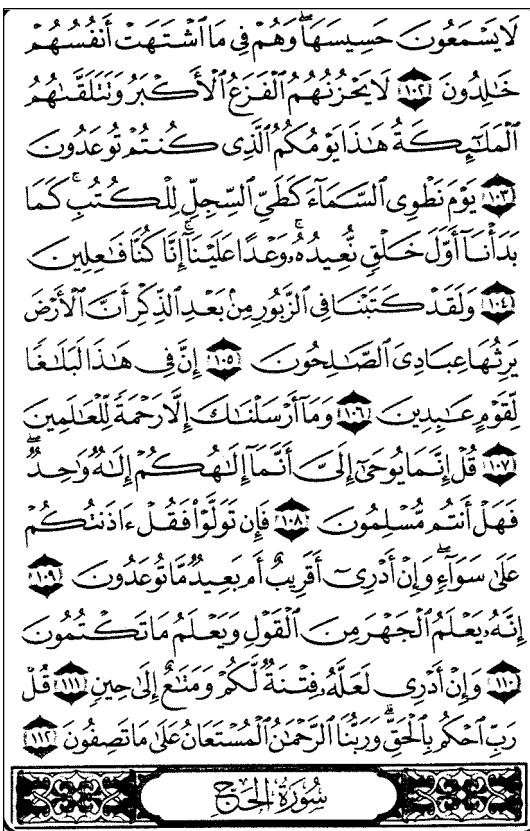 لَا يَسۡمَعُونَ حَسِيسَهَاۖ وَهُمۡ فِي مَا ٱشۡتَهَتۡ أَنفُسُهُمۡ
خَٰلِدُونَ ١٠٢ لَا يَحۡزُنُهُمُ ٱلۡفَزَعُ ٱلۡأَكۡبَرُ وَتَتَلَقَّىٰهُمُ
ٱلۡمَلَٰٓئِكَةُ هَٰذَا يَوۡمُكُمُ ٱلَّذِي كُنتُمۡ تُوعَدُونَ
١٠٣ يَوۡمَ نَطۡوِي ٱلسَّمَآءَ كَطَيِّ ٱلسِّجِلِّ لِلۡكُتُبِۚ كَمَا
بَدَأۡنَآ أَوَّلَ خَلۡقٖ نُّعِيدُهُۥۚ وَعۡدًا عَلَيۡنَآۚ إِنَّا كُنَّا فَٰعِلِينَ
١٠٤ وَلَقَدۡ كَتَبۡنَا فِي ٱلزَّبُورِ مِنۢ بَعۡدِ ٱلذِّكۡرِ أَنَّ ٱلۡأَرۡضَ
يَرِثُهَا عِبَادِيَ ٱلصَّٰلِحُونَ ١٠٥ إِنَّ فِي هَٰذَا لَبَلَٰغٗا
لِّقَوۡمٍ عَٰبِدِينَ ١٠٦ وَمَآ أَرۡسَلۡنَٰكَ إِلَّا رَحۡمَةٗ لِّلۡعَٰلَمِينَ
١٠٧ قُلۡ إِنَّمَا يُوحَىٰٓ إِلَيَّ أَنَّمَآ إِلَٰهُكُمۡ إِلَٰهٞ وَٰحِدٞۖ
فَهَلۡ أَنتُم مُّسۡلِمُونَ ١٠٨ فَإِن تَوَلَّوۡاْ فَقُلۡ ءَاذَنتُكُمۡ
عَلَىٰ سَوَآءٖۖ وَإِنۡ أَدۡرِيٓ أَقَرِيبٌ أَم بَعِيدٞ مَّا تُوعَدُونَ ١٠٩
إِنَّهُۥ يَعۡلَمُ ٱلۡجَهۡرَ مِنَ ٱلۡقَوۡلِ وَيَعۡلَمُ مَا تَكۡتُمُونَ
١١٠ وَإِنۡ أَدۡرِي لَعَلَّهُۥ فِتۡنَةٞ لَّكُمۡ وَمَتَٰعٌ إِلَىٰ حِينٖ ١١١ قُلۡ
رَبِّ ٱحۡكُم بِٱلۡحَقِّۗ وَرَبُّنَا ٱلرَّحۡمَٰنُ ٱلۡمُسۡتَعَانُ عَلَىٰ مَا تَصِفُونَ ١١٢
سُورَةُ الحَجِّ